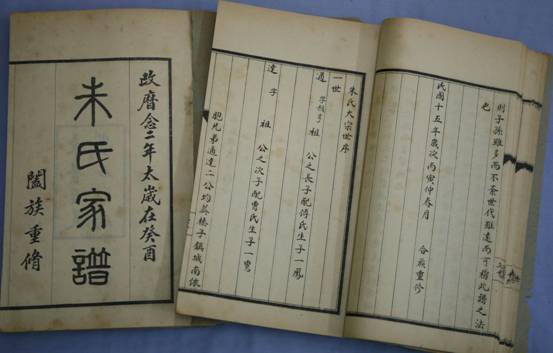 改曆念二年太歲在癸酉
朱氏家譜
闔族重脩
則子孫雖多而不紊世代雖遠而可稽此譜之法
也
民國十五年歲次丙寅仲春月 合族重修
朱氏大宗世序
一世
字 祖 公之長子配傅氏生子一鳳
達 字 祖 公之次子配曹氏生子一鸞
胞兄弟道達二公均葬 子鎮城南